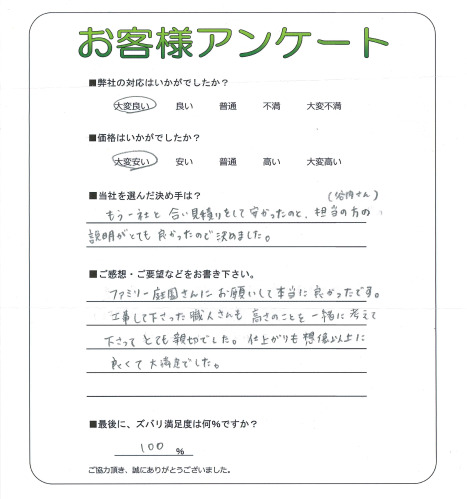 お客様アンケート
■弊社の対応はいかがでしたか？
大変良い 良い 普通 不満 大変不満
■価格はいかがでしたか？
大変安い 安い 普通 高い 大変高い
■当社を選んだ決め手は？
(谷内さん)
もう一社と合い見積りをして安かったのと、担当の方の
説明がとても良かったので決めました。
■ご感想・ご要望などをお書き下さい。
ファミリー庭園さんにお願いして本当に良かったです。
工事して下さった職人さんも高さのことを一緒に考えて
下さってとても親切でした。仕上がりも想像以上に
良くて大満足でした。
■最後に、ズバリ満足度は何％ですか？
100 %
ご協力頂き、誠にありがとうございました。